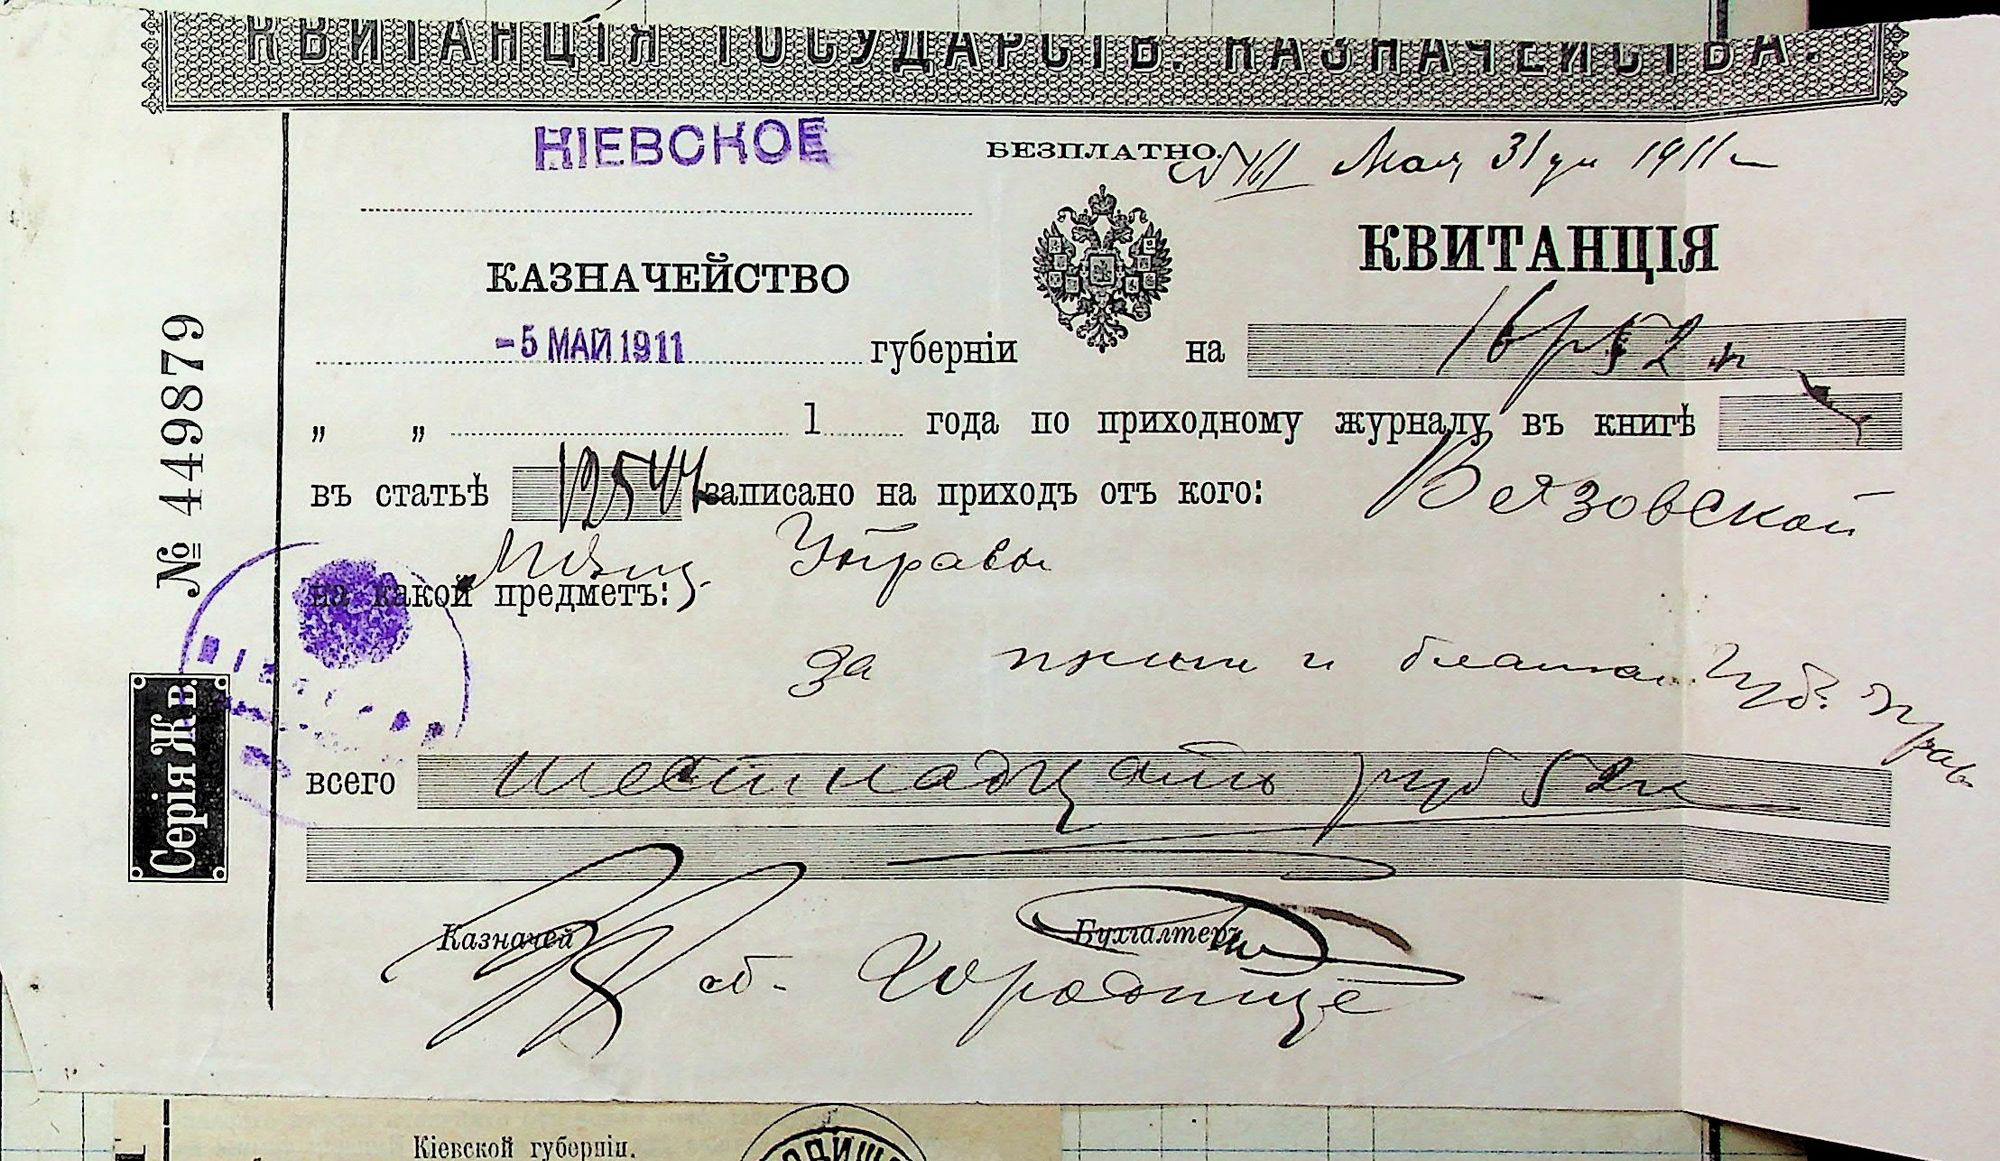 КВИТАНЦІЯ ГОСУДАРСТВ. КАЗНАЧЕЙСТВА.
КІЕВСКОЕ
БЕЗПЛАТНО.
Мая 31 дня 1911 г
КАЗНАЧЕЙСТВО
КВИТАНЦІЯ
-5 МАЙ 1911 губерніи
на 16 р 52 к
„ „ 1 года по приходному журналу въ книгѣ
въ статьѣ 12544 записано на приходъ отъ кого: Вязовской
Мѣщ. Управы
на какой предметъ:
за бланки Губ. Прав
всего шестнадцать руб 52 к
Казначей
Бухгалтеръ
об. Городище
№ 449879
Серія Жв.
Кіевской губерніи.